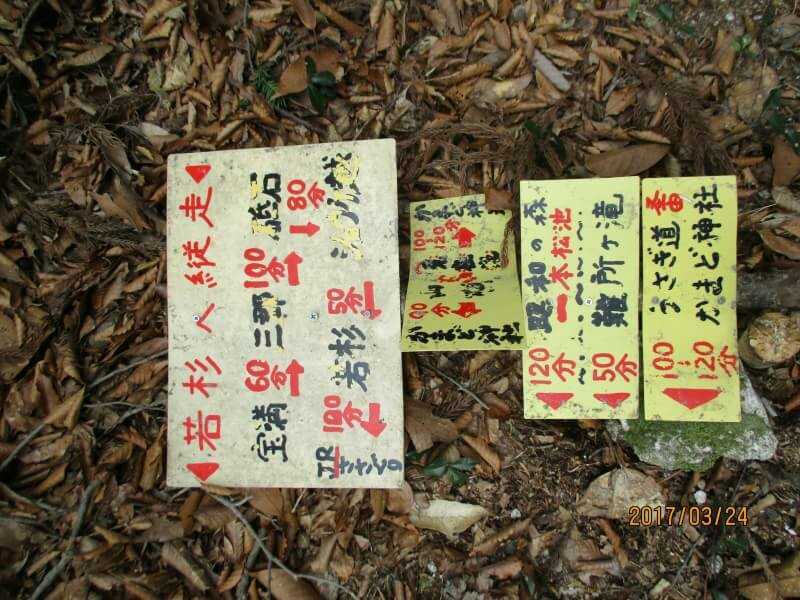 若杉へ縦走
宝満 60分 三郡 100分 砥石 80分
JRささぐり 100分 若杉 50分
100
120分
90分 かまど神社
昭和の森
一本松池
120分
難所ヶ滝
50分
うさぎ道
かまど神社
100
120分
2017/03/24